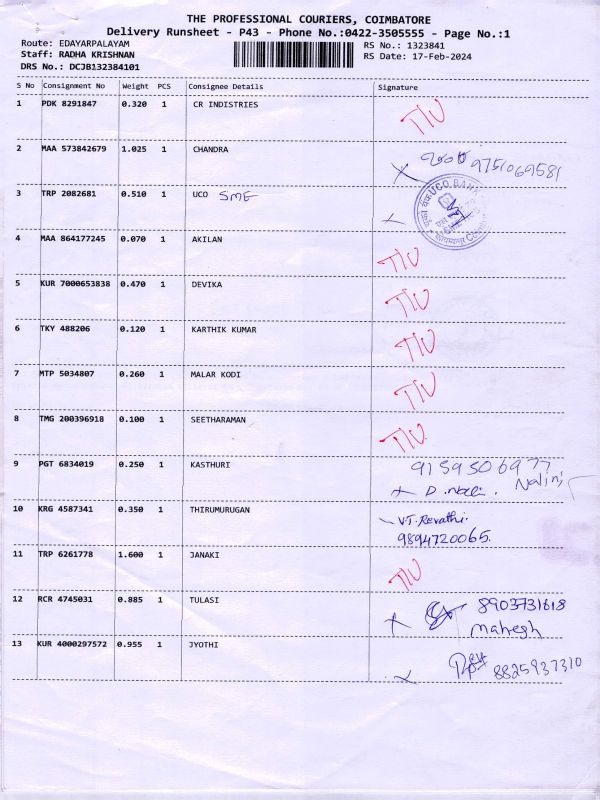 THE PROFESSIONAL COURIERS, COIMBATORE
Delivery Runsheet - P43 - Phone No.:0422-3505555 - Page No.:1
Route: EDAYARPALAYAM RS No.: 1323841
Staff: RADHA KRISHNAN RS Date: 17-Feb-2024
DRS No.: DCJB132384101
S No Consignment No Weight PCS Consignee Details Signature
1 PDK 8291847 0.320 1 CR INDISTRIES T/U
2 MAA 573842679 1.025 1 CHANDRA 9751069581
3 TRP 2082681 0.510 1 UCO SME UCO BANK
4 MAA 864177245 0.070 1 AKILAN T/U
5 KUR 7000653838 0.470 1 DEVIKA T/U
6 TKY 488206 0.120 1 KARTHIK KUMAR T/U
7 MTP 5034807 0.260 1 MALAR KODI T/U
8 TMG 200396918 0.100 1 SEETHARAMAN T/U
9 PGT 6834019 0.250 1 KASTHURI 9159506977
Nalini
10 KRG 4587341 0.350 1 THIRUMURUGAN V.T. Revathi
9894720065
11 TRP 6261778 1.600 1 JANAKI T/U
12 RCR 4745031 0.885 1 TULASI 8903731618
mahesh
13 KUR 4000297572 0.955 1 JYOTHI 8825937310